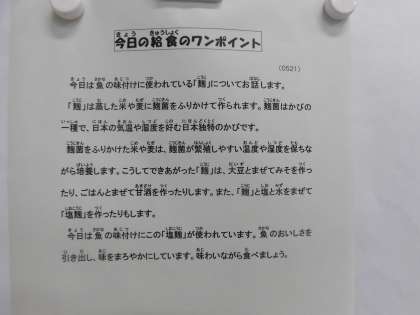 今日の給食のワンポイント
(0521)
今日は魚の味付けに使われている「麹」についてお話します。
「麹」は蒸した米や麦に麹菌をふりかけて作られます。麹菌はかびの
一種で、日本の気温や湿度を好む日本独特のかびです。
麹菌をふりかけた米や麦は、麹菌が繁殖しやすい温度や湿度を保ちな
がら培養します。こうしてできあがった「麹」は、大豆とまぜてみそを作っ
たり、ごはんとまぜて甘酒を作ったりします。また、「麹」と塩と水をまぜて
「塩麹」を作ったりもします。
今日は魚の味付けにこの「塩麹」が使われています。魚のおいしさを
引き出し、味をまろやかにしています。味わいながら食べましょう。